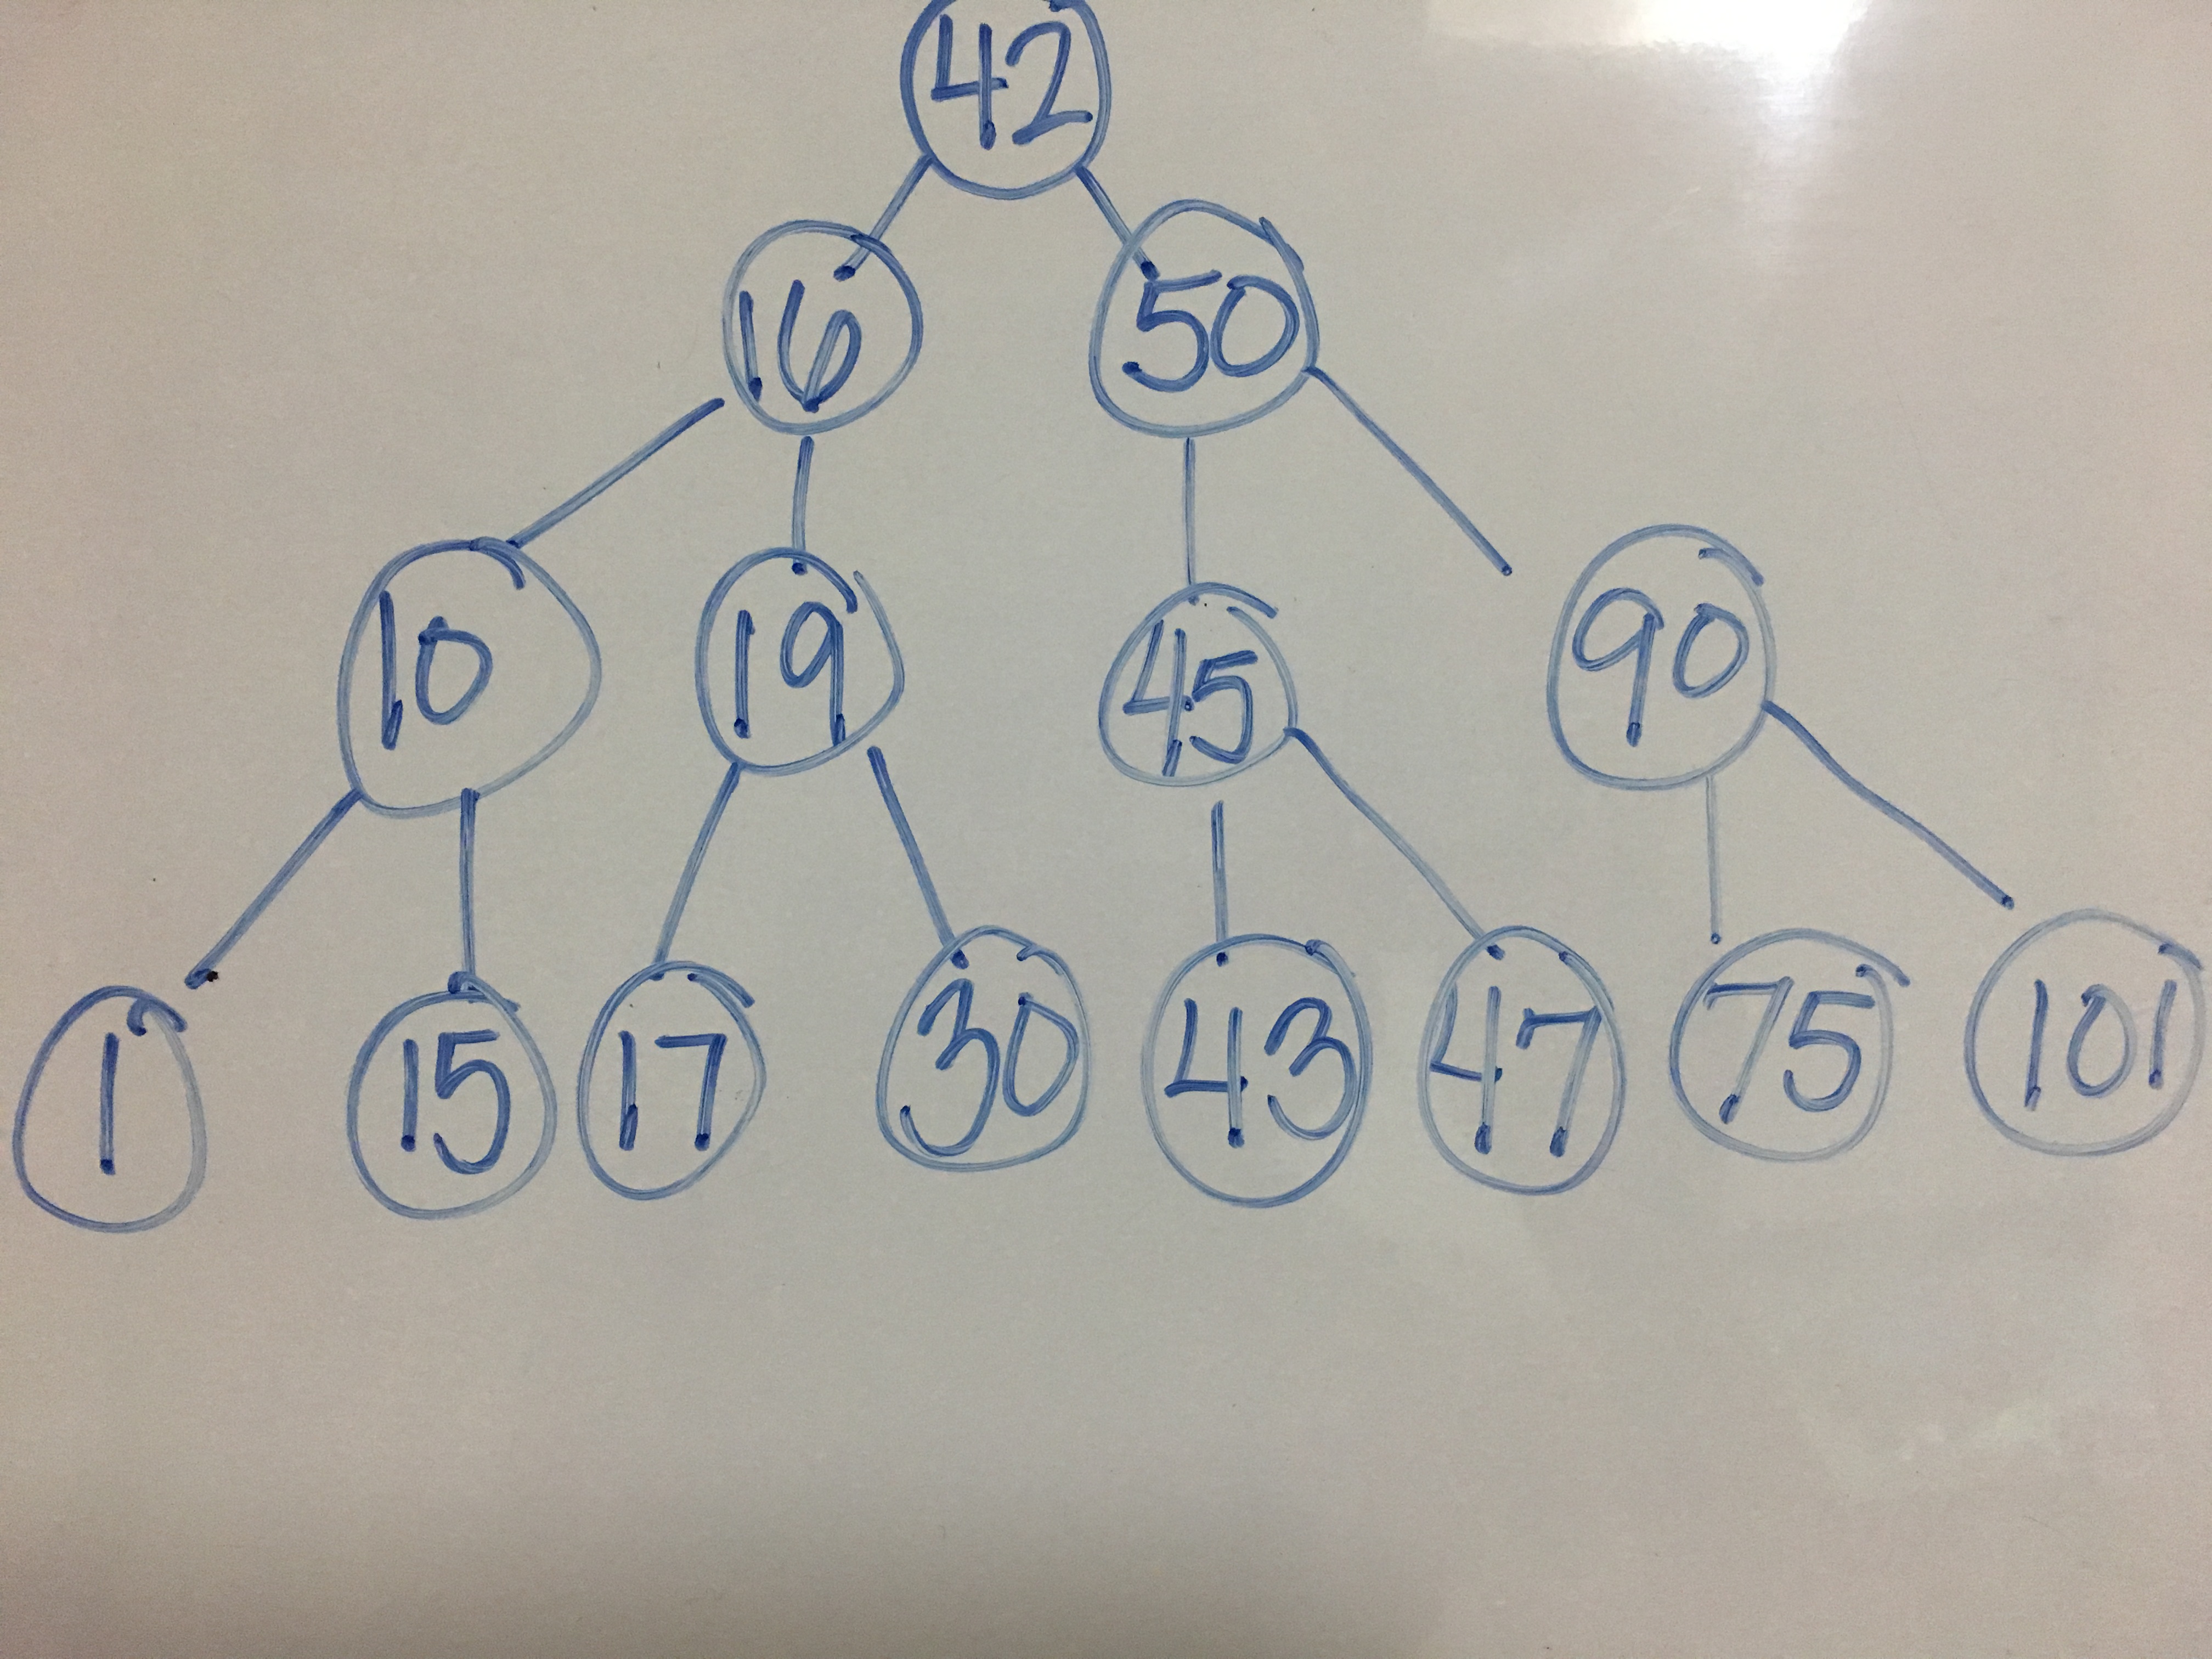 42
16 50
10 19 45 90
1 15 17 30 43 47 75 101